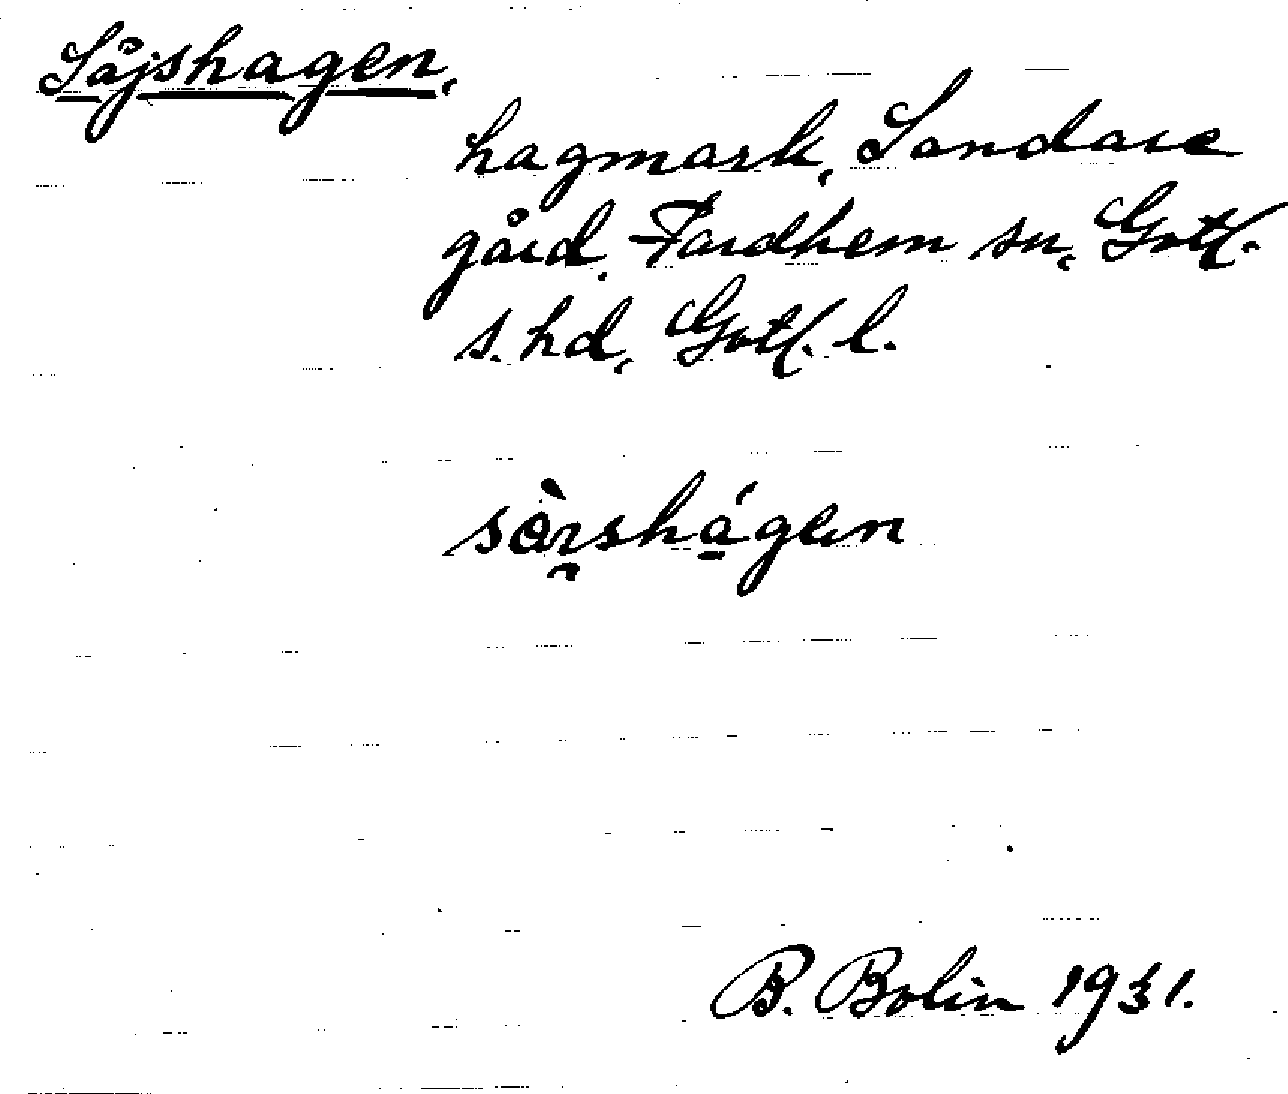 Såjshagen,
hagmark, Sandare
gård, Fardhem sn, Gotl.
s. hd, Gotl. l.
B. Bolin 1931.